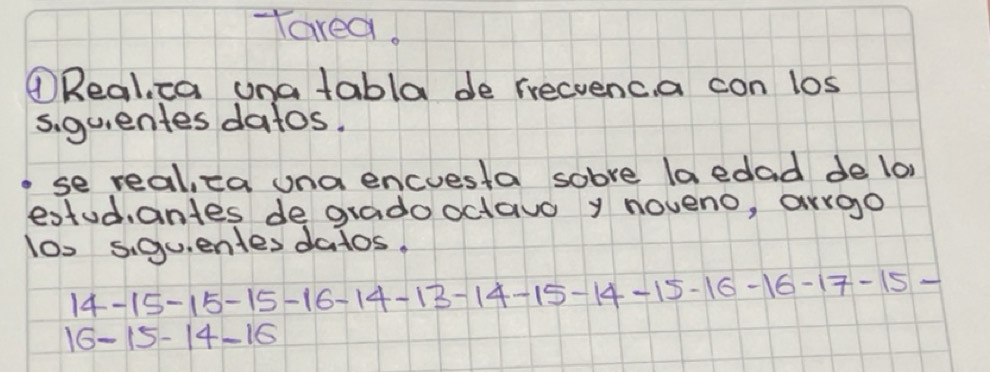 Tarea.
① Realiza una tabla de frecuencia con los
siguientes datos.
• se realiza una encuesta sobre la edad de los
estudiantes de grado octavo y noveno, arrgo
los siguientes datos.
14-15-15-15-16-14-13-14-15-14-15-16-16-17-15-
16-15-14-16